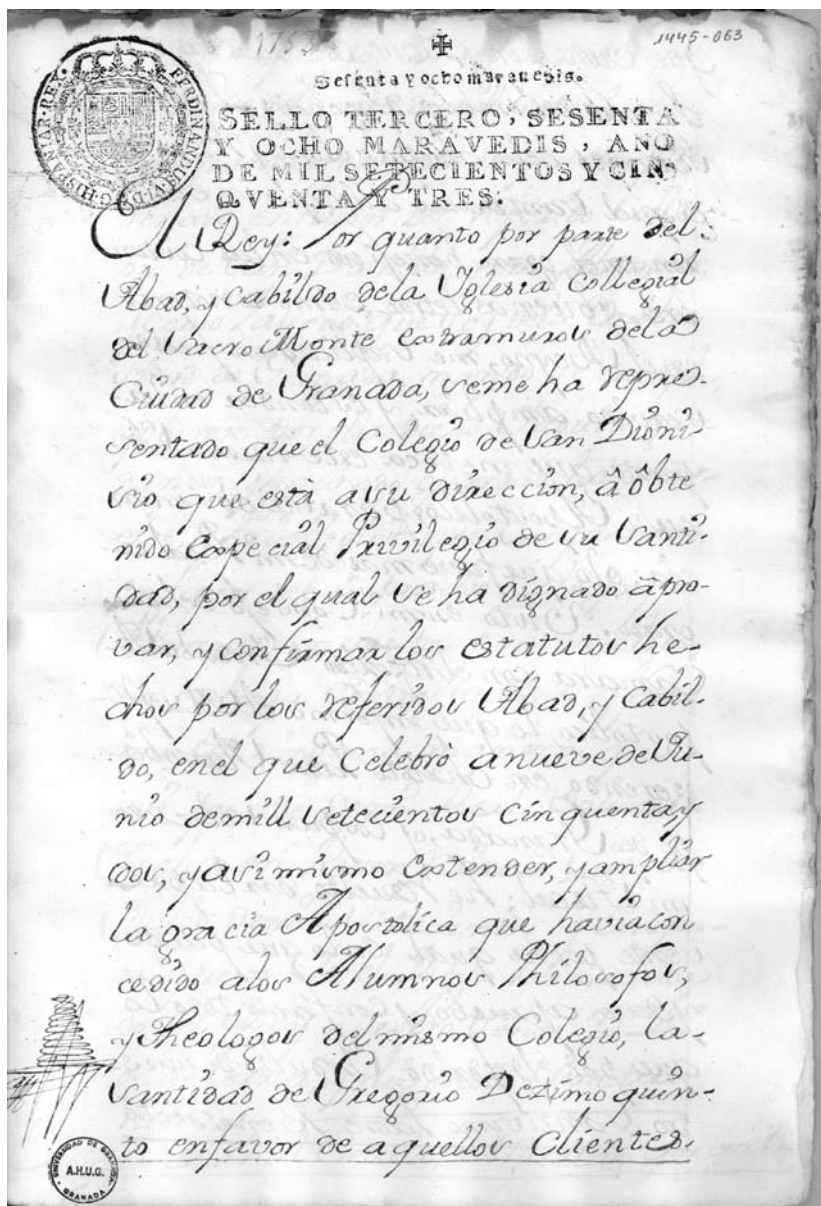 1753
1445-063
Sesenta y ocho marauedis.
FERDINANDUS·VI·D·G·HISPANIAR·REX·
SELLO TERCERO, SESENTA
Y OCHO MARAVEDIS, AÑO
DE MIL SETECIENTOS Y CIN-
QVENTA Y TRES.
El Rey: Por quanto por parte del
Abad, y Cabildo dela Yglesia Collegial
del Sacro Monte extramuros dela
Ciudad de Granada, seme ha repre-
sentado que el Colegio de San Dioni-
sio que està asu direccion, â ôbte
nido Especial Privilegio de su Santi-
dad, por el qual se ha dignado âpro-
var, y confirmar los estatutos he-
chos por los referidos Abad, y Cabil-
do, enel que Celebrò anueve de Ju-
nio demill setecientos cinquenta y
dos, y asi mismo extender, y ampliar
la gracia Apostolica que haviacon
cedido alos Alumnos Philosofos,
y Theologos del mismo Colegio, la
Santidad de Gregorio Dezimo quin-
to enfavor de aquellos Clientes.
UNIVERSIDAD DE GRANADA
A.H.U.G.
GRANADA